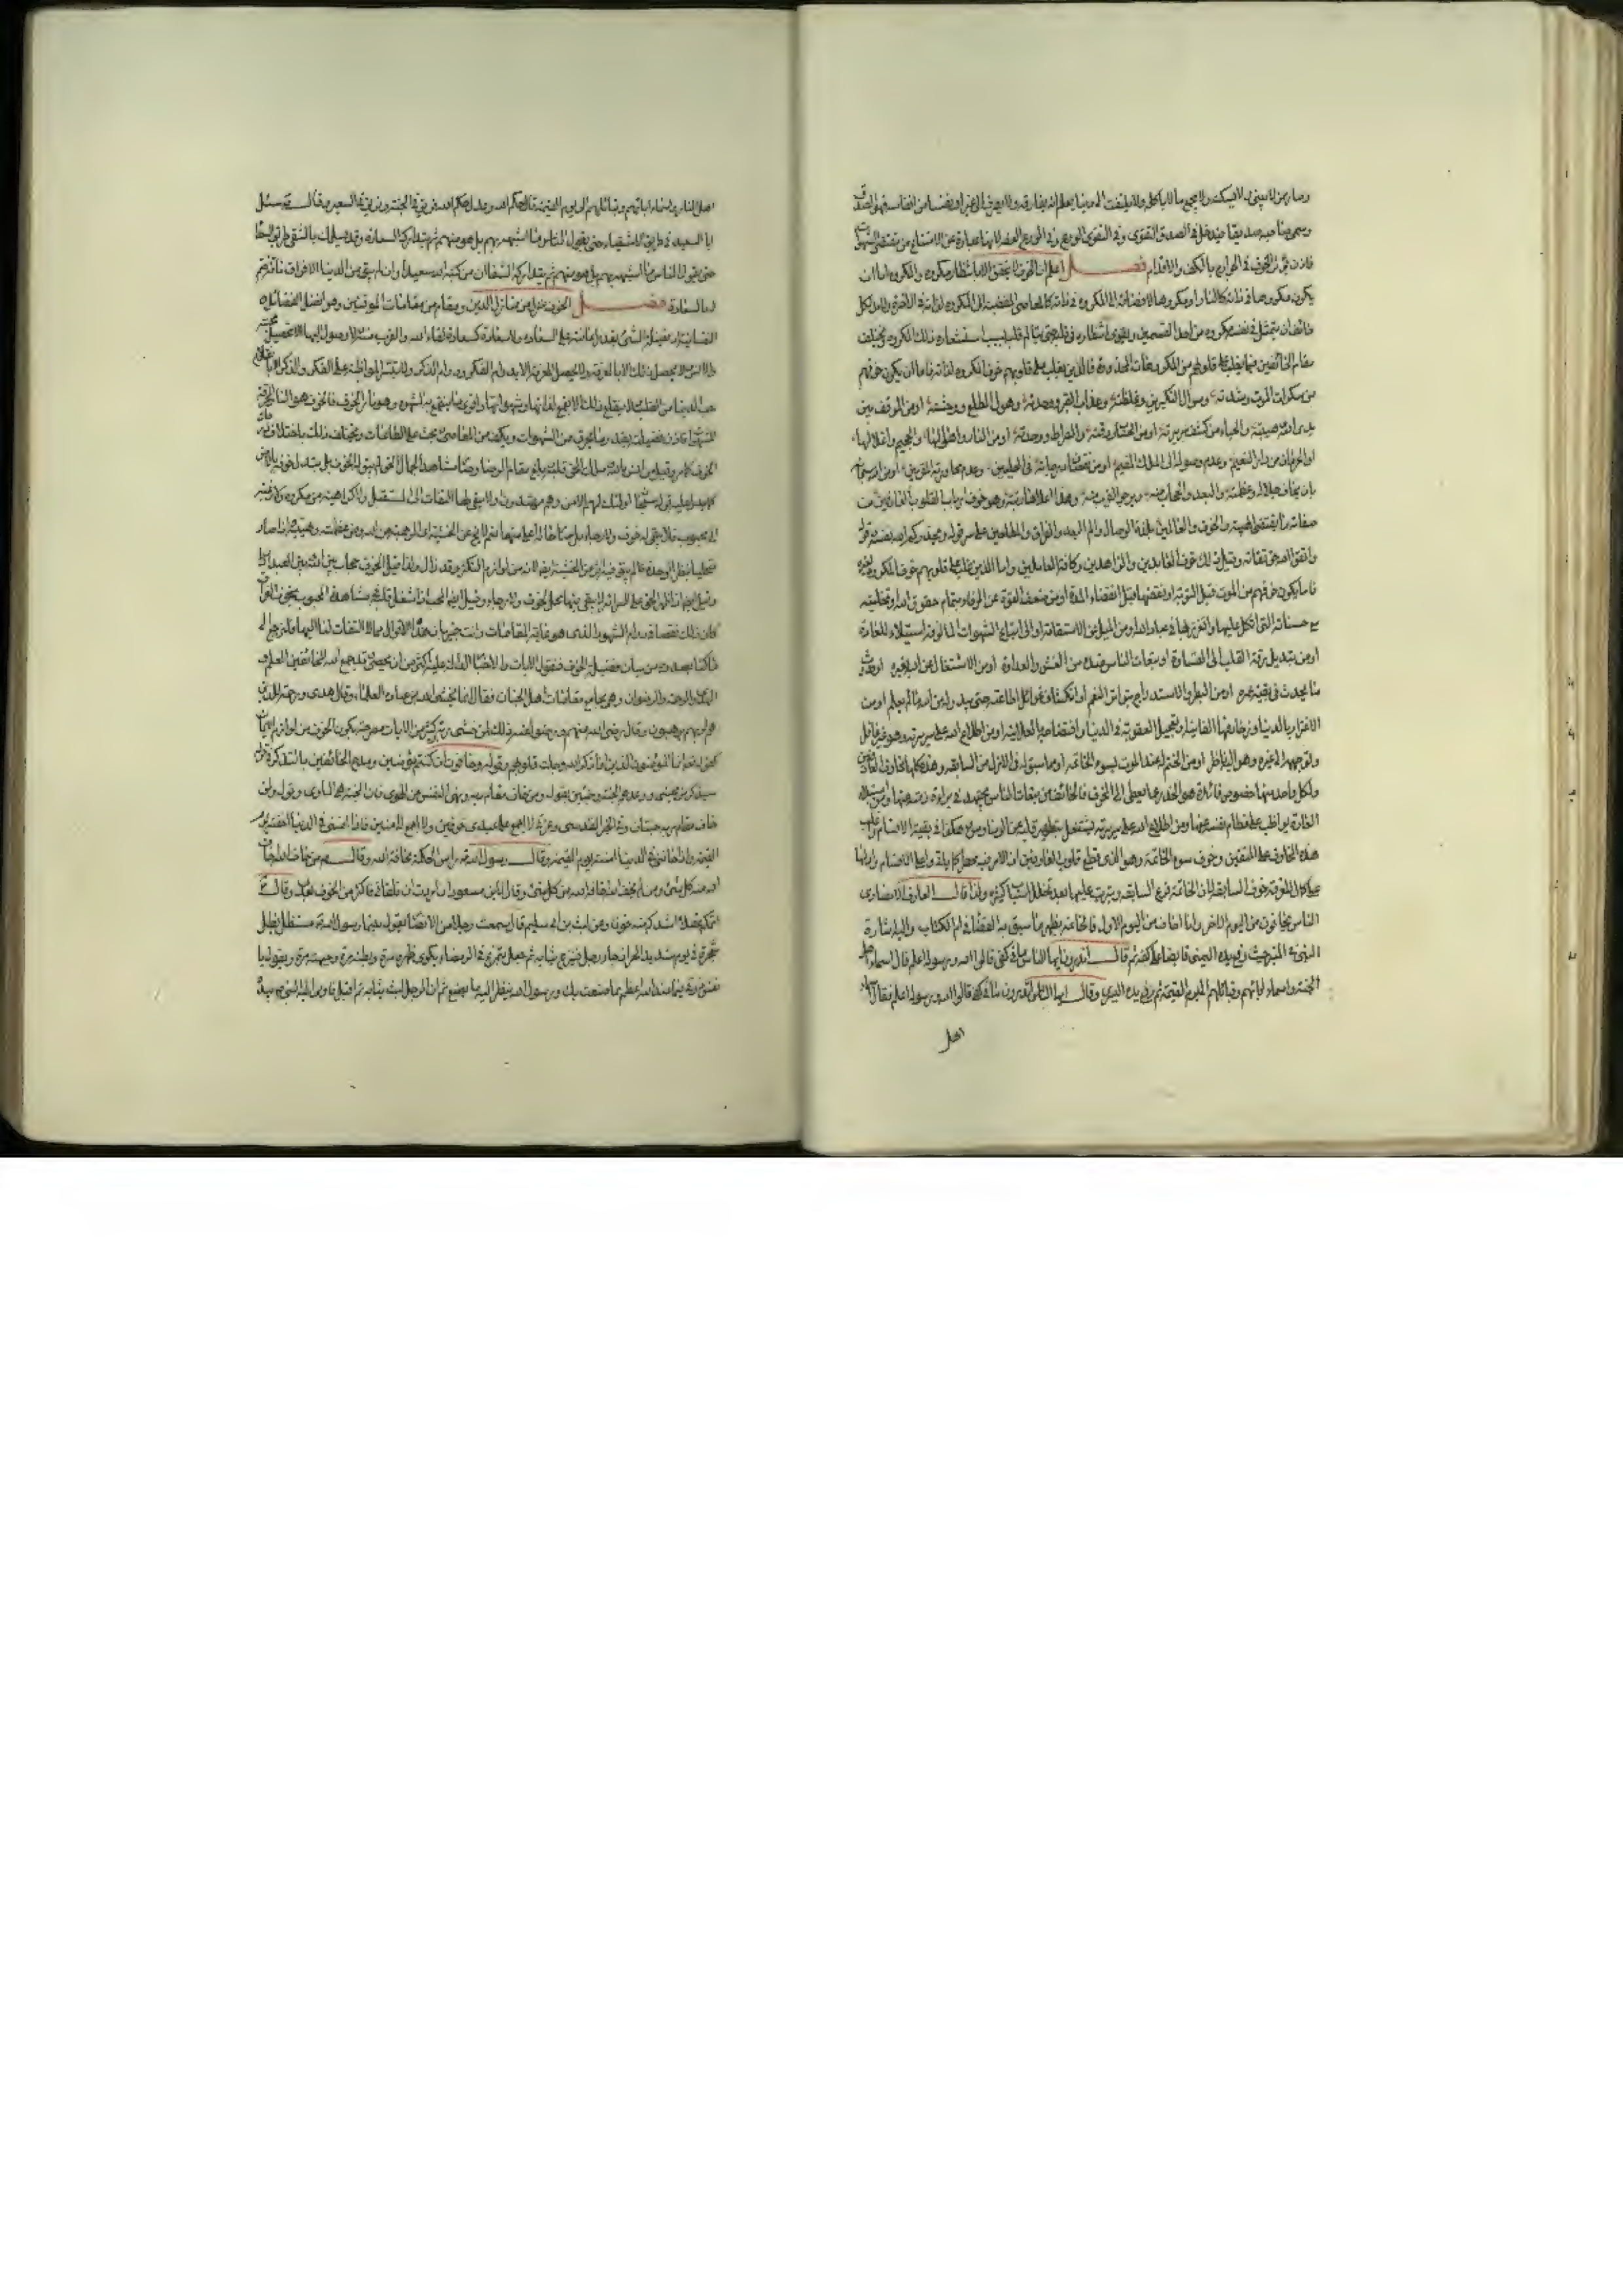 وصار من لا يبنى ما لا يسكنه ولا يجمع ما لا ياكله ولا يلتفت الى دنيا يعلم انه يفارقه ولا يصرف الى غير الله نفسا من انفاسه فهو الصدق
وسمى صاحبه صديقا ويدخل فى الصدق التقوى وفى التقوى الورع وفى الورع العفة لانها عبارة عن الامتناع من مقتضى الشهوات
فاذن يؤثر الخوف فى الجوارح بالكف والاقدام فصل اعلم ان الخوف لا يتحقق الا بانتظار مكروه والمكروه اما ان
يكون مكروها فى ذاته كالنار او مكروها لافضائه الى المكروه فى ذاته كالمعاصى المفضية الى المكروه لذاته فى الاخرة ولا بد لكل
خائف ان يتمثل فى نفسه مكروه من احد القسمين ويقوى انتظاره فى قلبه حتى يتالم قلبه بسبب استشعاره ذلك المكروه ويختلف
مقام الخائفين فيما يغلب على قلوبهم من المكروهات المحذورة فالذين يغلب على قلوبهم خوف المكروه لذاته فاما ان يكون خوفهم
من سكرات الموت وشدته وسؤال النكيرين وغلظته وعذاب القبر ووحدته وهول المطلع ووحشته او من الموقف بين
يدى الله وهيبته والحياء من كشف سريرته او من الحساب ودقته والصراط وحدته او من النار واهوالها والجحيم واغلالها
او الحرمان من دار النعيم وعدم وصوله الى الملك المقيم او من نقصان درجاته فى العليين وعدم مجاورته المقربين او من الله سبحانه
بان يخاف جلاله وعظمته والبعد والحجاب منه ويرجو القرب منه وهذا اعلاها رتبة وهو خوف ارباب القلوب العارفين من
صفاته ما يقتضى الهيبة والخوف والعالمين بلذة الوصال والم البعد والفراق والمطلعين على سر قوله ويحذركم الله نفسه وقوله
واتقوا الله حق تقاته وقبل ذلك خوف العابدين والزاهدين وكافة العاملين واما الذين غلب على قلوبهم خوف المكروه لغيره
فاما يكون خوفهم من الموت قبل التوبة او نقضها قبل انقضاء المدة او من ضعف القوة عن الوفاء بتمام حقوق الله او تخليته
مع حسناته التى اتكل عليها وتعزز بها فى عباد الله او من الميل عن الاستقامة او الى اتباع الشهوات المالوفة استيلاء للعادة
او من تبديل رقة القلب الى القساوة او تبعات الناس عنده من الغش والعداوة او من الاشتغال عن الله بغيره او حدوث
ما يحدث فى بقية عمره او من البطر والاستدراج بتواتر النعم او انكشاف غوائل طاعته حتى يبدو له من الله ما لم يعلم او من
الاغترار بالدنيا وزخارفها الفانية او تعجيل العقوبة فى الدنيا وافتضاحه العلانية او من اطلاع الله على سريرته وهو عنه غافل
وتوجهه الى غيره وهو اليه ناظر او من الختم له عند الموت بسوء الخاتمة او مما سبق له فى الازل من السابقة وهذه كلها مخاوف العارفين
ولكل واحد منها خصوص فائدة هو الحذر عما يفضى الى المخوف فالخائف من تبعات الناس يجتهد فى براءة ذمته عنها ومن استيلاء
العادة يواظب على فطام نفسه عنها ومن اطلاع الله على سريرته يشتغل بتطهير قلبه عن الوساوس وهكذا فى بقية الاقسام واغلب
هذه المخاوف على المتقين خوف سوء الخاتمة وهو الذى قطع قلوب العارفين اذ الامر فيه خطر كل واعلى الاقسام وادلها
على كمال المعرفة خوف السابقة لان الخاتمة فرع السابقة ويترتب عليها بعد تخلل اسباب كثيرة ولذا قال العارف الانصارى
الناس يخافون من اليوم الاخر وانا اخاف من اليوم الاول فالخاتمة يظهر ما سبق به القضاء فى ام الكتاب واليه اشارة
النبى فى المنبر حيث رفع يده اليمنى قابضا على كفه ثم قال اتدرون ايها الناس ما فى كفى قالوا الله ورسوله اعلم قال اسماء اهل
الجنة واسماء ابائهم وقبائلهم الى يوم القيمة ثم رفع يده اليسرى وقال ايها الناس اتدرون ما فى كفى قالوا الله ورسوله اعلم فقال اسماء
اهل
اهل النار واسماء ابائهم وقبائلهم الى يوم القيمة قال حكم الله وعدل حكم الله فريق فى الجنة وفريق فى السعير وقال يسلك
بالسعيد فى طريق الاشقياء حتى يقول الناس ما اشبهه بهم بل هو منهم ثم يتداركه السعادة وقد يسلك بالشقى طريق السعداء
حتى يقول الناس ما اشبهه بهم بل هو منهم ثم يتداركه الشقاء ان من كتبه الله سعيدا وان لم يبق من الدنيا الا فواق ناقة ختم
له بالسعادة فصل الخوف منزل من منازل الدين ومقام من مقامات الموقنين وهو افضل الفضائل
النفسانية اذ فضيلة الشئ بقدر اعانته على السعادة ولا سعادة كسعادة لقاء الله والقرب منه ولا وصول اليها الا بتحصيل محبته
والانس ولا يحصل ذلك الا بالمعرفة ولا يحصل المعرفة الا بدوام الفكر ودوام الذكر ولا يتيسر المواظبة على الفكر والذكر الا بانقلاع
حب الدنيا من القلب ولا ينقلع ذلك الا بقمع لذاتها وشهواتها واقوى ما ينقمع به الشهوة هو نار الخوف فالخوف هو النار المحرقة
للشهوات فاذن فضيلته بقدر ما يحرق من الشهوات ويكف من المعاصى ويحث على الطاعات ويختلف ذلك باختلاف درجات
الخوف كما مر وقيل من انس بالله وملك الحق قلبه وبلغ مقام الرضا وصار مشاهدا لجمال الحق لم يبق له الخوف بل يتبدل خوفه بالامن
كما يدل عليه قوله سبحانه اولئك لهم الامن وهم مهتدون ولا يبقى له التفات الى المستقبل ولا كراهية من مكروه ولا رغبة
الى محبوب فلا يبقى له خوف ولا رجاء بل صار حاله اعلى منهما نعم لا يخلو عن الخشية اى الرهبة من الله ومن عظمته وهيبته واذا صار
متجليا بنظر الوحدة لم يبق فيه اثر من الخشية ايضا لانه من لوازم التكثر وقد زال ولذا قيل الخوف حجاب بين الله وبين العبد
وقيل ايضا اذا ظهر الحق على السرائر لا يبقى فيها محل لخوف ولا رجاء وقيل ايضا المحب اذا شغل قلبه فى مشاهدة المحبوب بخوف الفراق
كان ذلك نقصا فى دوام الشهود الذى هو غاية المقامات وانت خبير بان هذه الاقوال مما لا التفات لنا اليها ولنرجع الى
ما كنا بصدده من بيان فضيلة الخوف فنقول الايات والاخبار الدالة عليه اكثر من ان يحصى وقد جمع الله للخائفين العلم و
الهدى والرحمة والرضوان وهى مجامع مقامات اهل الجنان فقال انما يخشى الله من عباده العلماء وقال هدى ورحمة للذين
هم لربهم يرهبون وقال رضى الله عنهم ورضوا عنه ذلك لمن خشى ربه وكثير من الايات مصرحة بكون الخوف من لوازم الايمان
كقوله تعالى انما المؤمنون الذين اذا ذكر الله وجلت قلوبهم وقوله وخافون ان كنتم مؤمنين ومدح الخائفين بالتذكر فى قوله
سيذكر من يخشى ووعدهم الجنة وجنتين بقوله ومن خاف مقام ربه ونهى النفس عن الهوى فان الجنة هى الماوى وقوله ولمن
خاف مقام ربه جنتان وفى الخبر القدسى وعزتى لا اجمع على عبدى خوفين ولا اجمع له امنين فاذا امننى فى الدنيا اخفته يوم
القيمة واذا خافنى فى الدنيا امنته يوم القيمة وقال رسول الله راس الحكمة مخافة الله وقال من خاف الله اخاف
الله منه كل شئ ومن لم يخف الله اخافه الله من كل شئ وقال لابن مسعود ان اردت ان تلقانى فاكثر من الخوف بعدى وقال
اتمكم عقلا اشدكم لله خوفا وعن ليث بن ابى سليم قال سمعت رجلا من الانصار يقول بينما رسول الله مستظل بظل
شجرة فى يوم شديد الحر اذ جاء رجل فنزع ثيابه ثم جعل يتمرغ فى الرمضاء يكوى ظهره مرة وبطنه مرة وجبهته مرة ويقول يا
نفس ذوقى فما عند الله اعظم مما صنعت بك ورسول الله ينظر اليه ما يصنع ثم ان الرجل لبس ثيابه ثم اقبل فاومى اليه النبى بيده